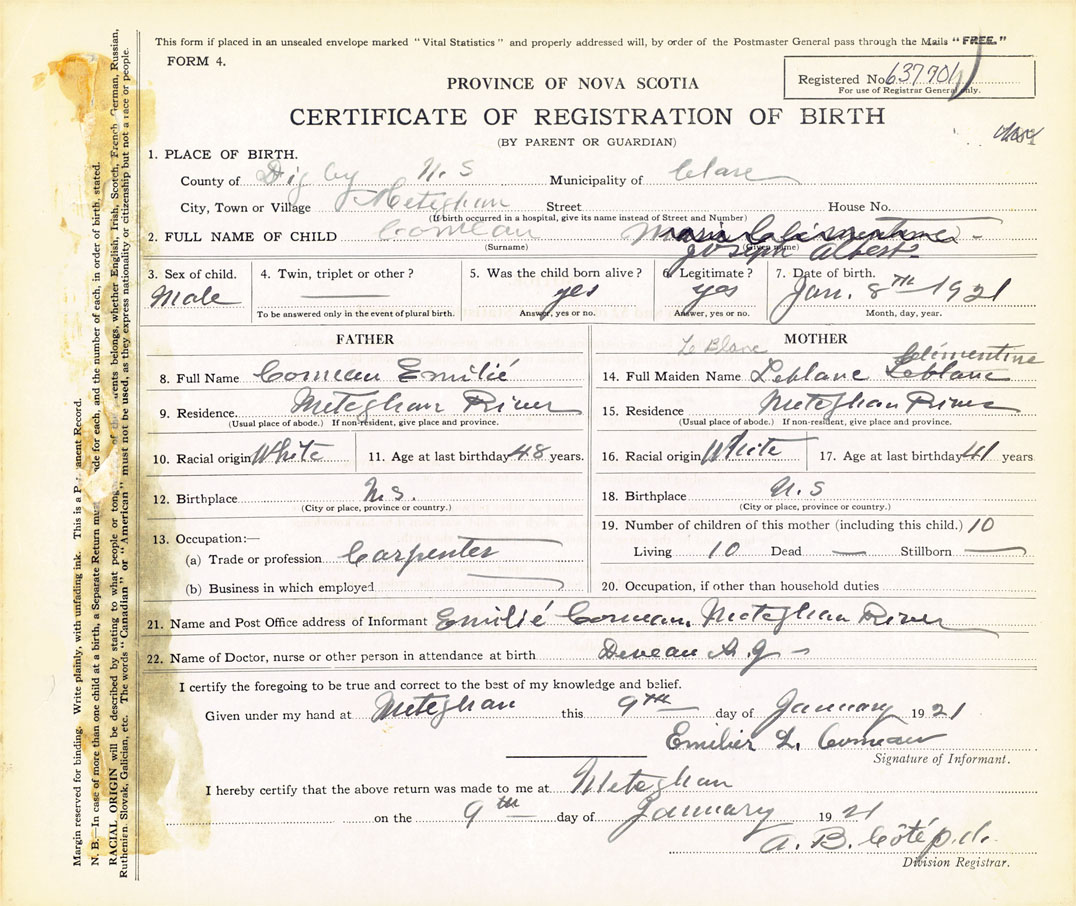 This form if placed in an unsealed envelope marked "Vital Statistics" and properly addressed will, by order of the Postmaster General pass through the Mails "FREE."
FORM 4.
PROVINCE OF NOVA SCOTIA
Registered No. 637901
For use of Registrar General only.
CERTIFICATE OF REGISTRATION OF BIRTH
(BY PARENT OR GUARDIAN)
1. PLACE OF BIRTH.
County of Digby N.S Municipality of Clare
City, Town or Village Meteghan Street House No.
(If birth occurred in a hospital, give its name instead of Street and Number)
2. FULL NAME OF CHILD Comeau
(Surname) (Given name)
Joseph Albert
3. Sex of child. 4. Twin, triplet or other? 5. Was the child born alive? 6. Legitimate? 7. Date of birth.
Male yes yes Jan. 8TH 1921
To be answered only in the event of plural birth. Answer, yes or no. Answer, yes or no. Month, day, year.
FATHER
8. Full Name Comeau Emilié
9. Residence Meteghan River
(Usual place of abode.) If non-resident, give place and province.
10. Racial origin White 11. Age at last birthday 48 years.
12. Birthplace N.S.
(City or place, province or country.)
13. Occupation:—
(a) Trade or profession Carpenter
(b) Business in which employed
MOTHER
Le Blanc Clémentine
14. Full Maiden Name Leblanc Leblanc
15. Residence Meteghan River
(Usual place of abode.) If non-resident, give place and province.
16. Racial origin White 17. Age at last birthday 41 years
18. Birthplace N.S
(City or place, province or country.)
19. Number of children of this mother (including this child.) 10
Living 10 Dead — Stillborn —
20. Occupation, if other than household duties
21. Name and Post Office address of Informant Emilié Comeau, Meteghan River
22. Name of Doctor, nurse or other person in attendance at birth Deveau
I certify the foregoing to be true and correct to the best of my knowledge and belief.
Given under my hand at Meteghan this 9TH day of January 1921
Emilier L. Comeau
Signature of Informant.
I hereby certify that the above return was made to me at Meteghan
on the 9th day of January 1921
A. B. Côté p.d.
Division Registrar.
Margin reserved for binding. Write plainly, with unfading ink. This is a Permanent Record.
N. B.—In case of more than one child at a birth, a Separate Return must made for each, and the number of each, in order of birth, stated.
RACIAL ORIGIN will be described by stating to what people or tongue of the parents belongs, whether English, Irish, Scotch, French, German, Russian,
Ruthenian, Slovak, Galician, etc. The words "Canadian" or "American" must not be used, as they express nationality or citizenship but not a race or people.